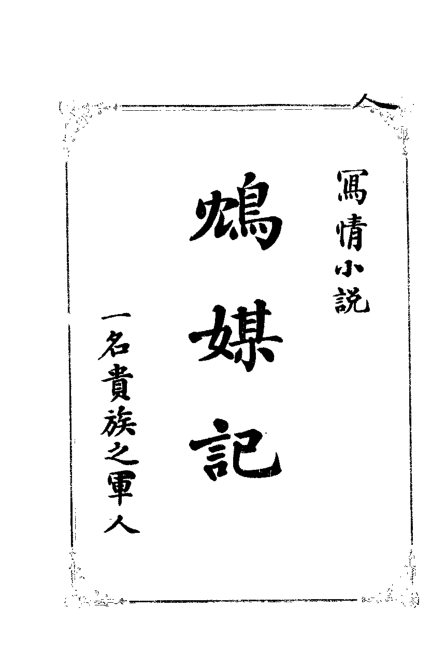 寫情小説
鴆媒記
一名貴族之軍人